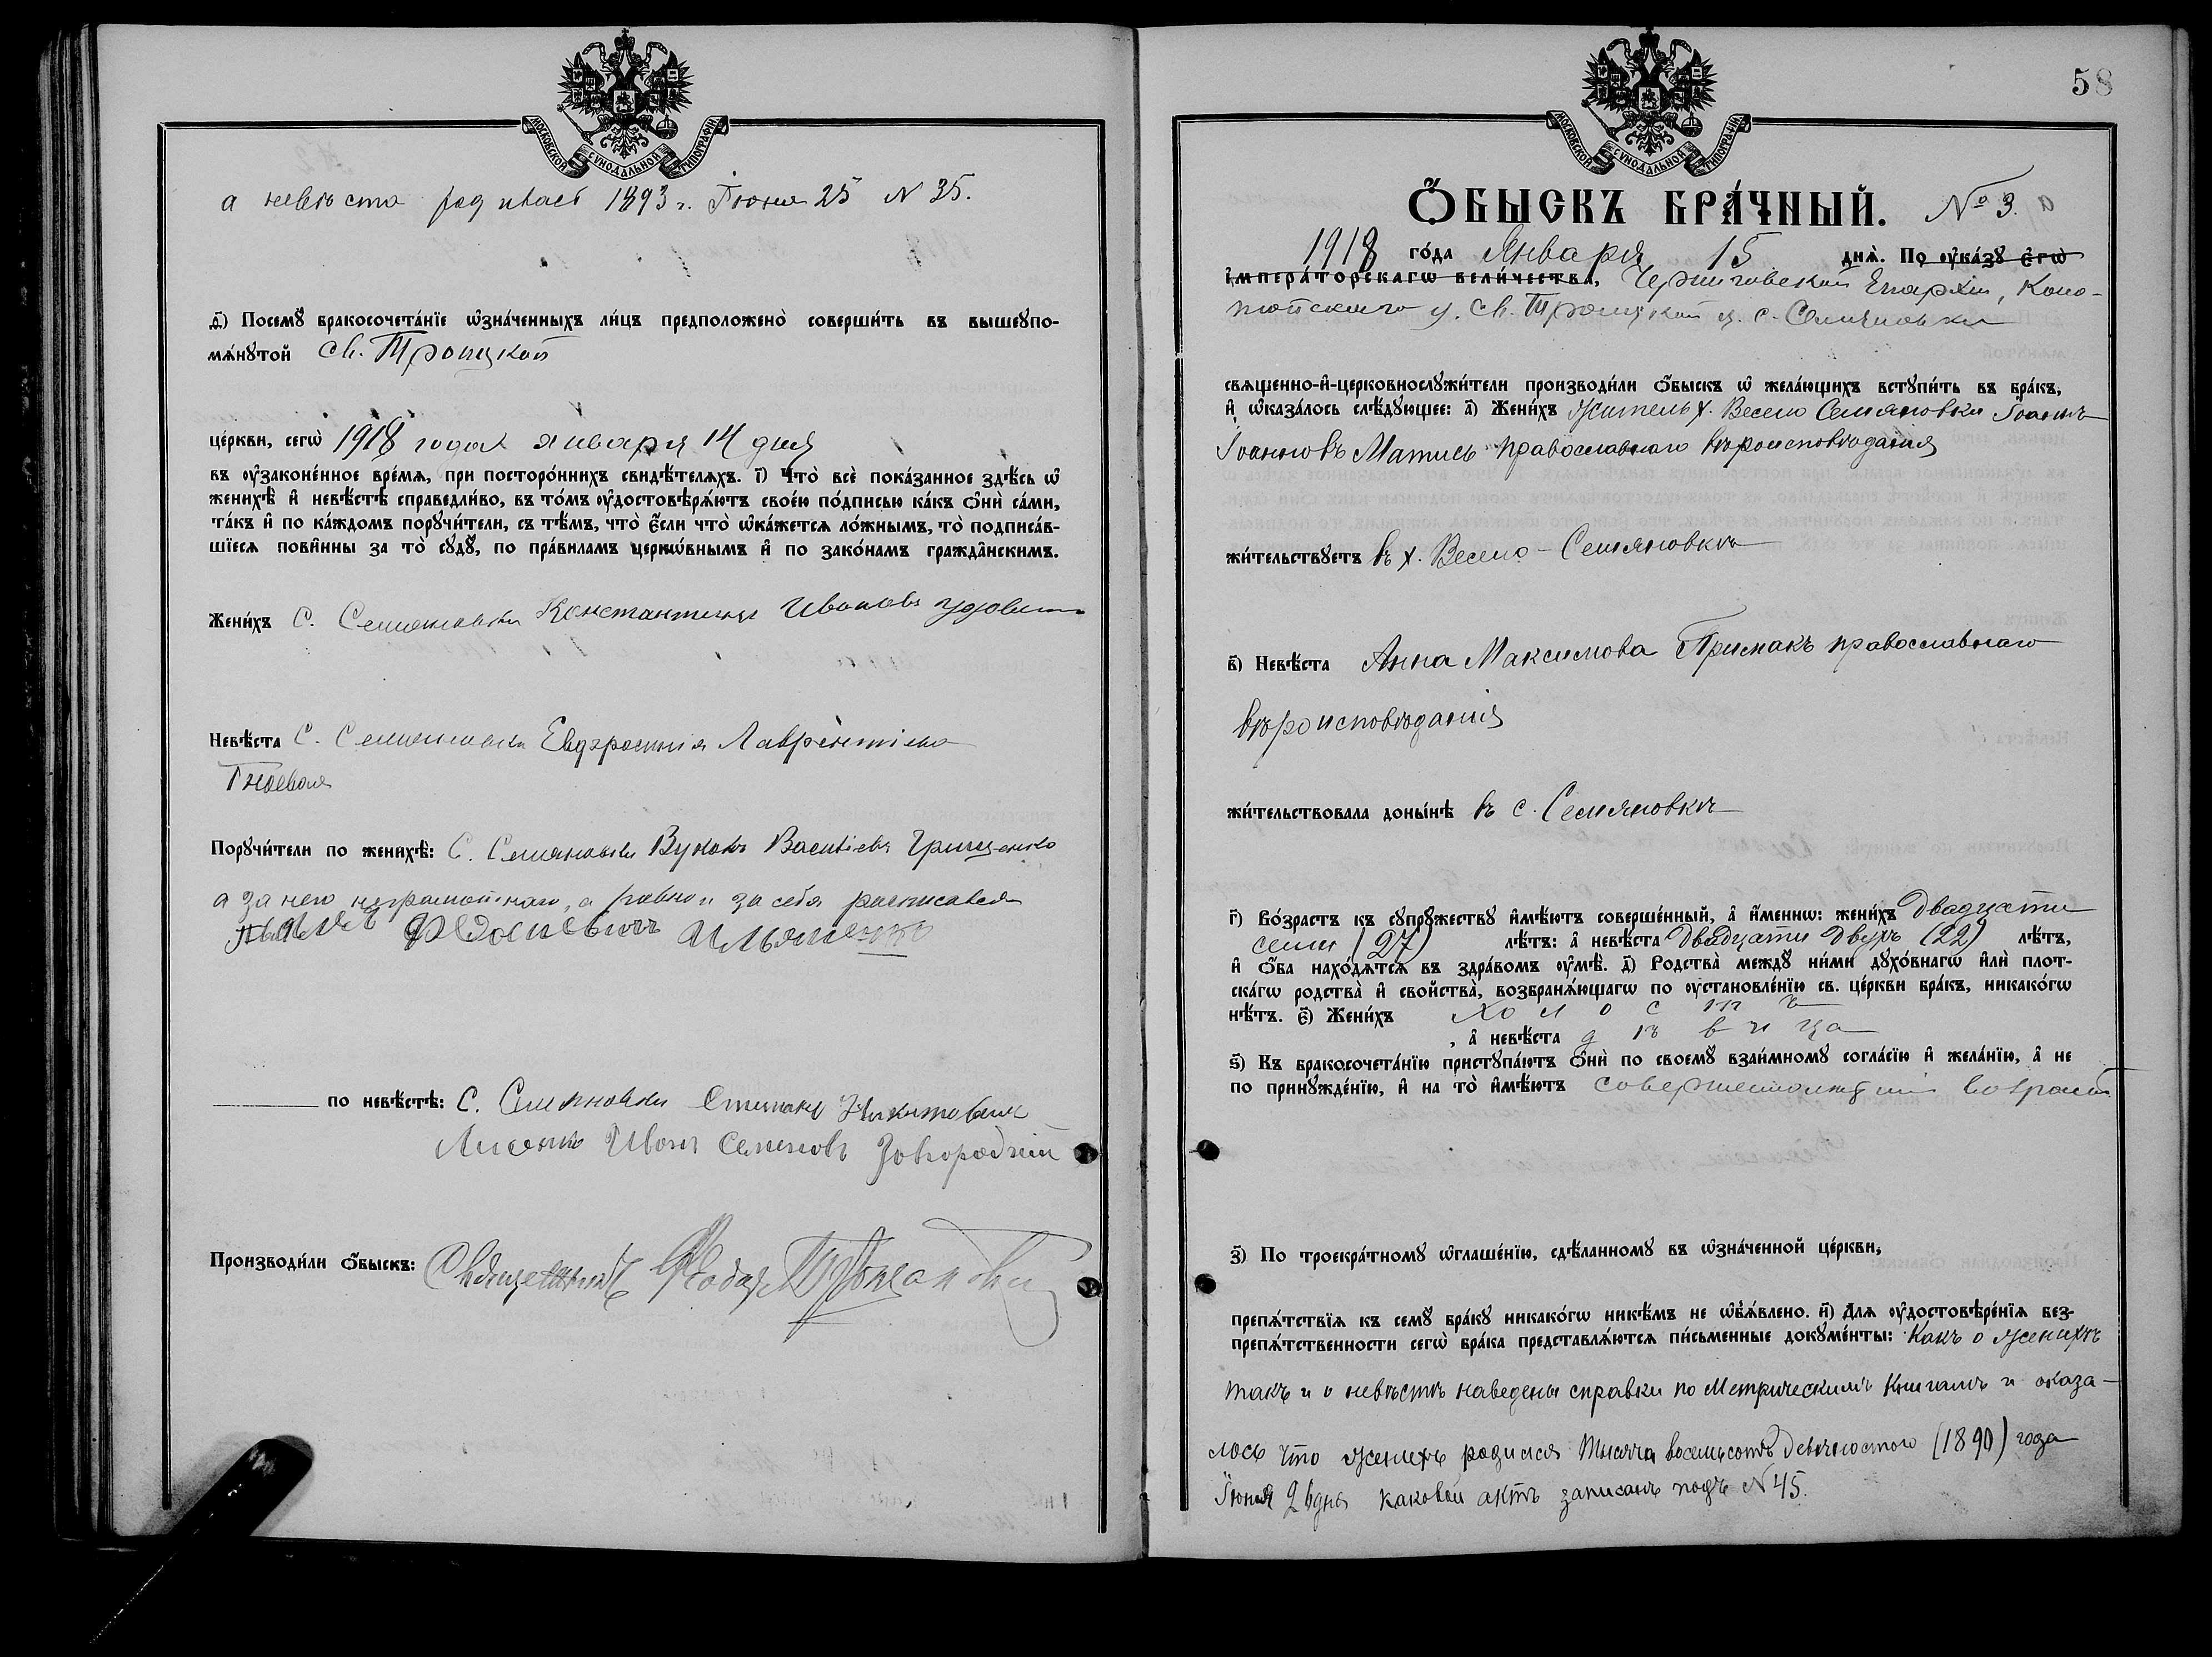 МОСКОВСКОЙ СѴНОДАЛЬНОЙ ТИПОГРАФІИ
а невѣста родилась 1893 г. Іюня 25 N 35.
д҃) Посемꙋ̀ бракосочета́нїе ѡ҆зна́ченныхъ ли́цъ предположено̀ соверши́ть въ вышеꙋпо-
мѧ́нꙋтой св. Троицкой
це́ркви, сегѡ̀ 1918 года января 14 дня
въ ᲂу҆законе́нное вре́мѧ, при посторо́ннихъ свидѣ́телѧхъ. і҃) Что̀ всѐ пока́занное здѣ́сь ѡ҆
женихѣ̀ и҆ невѣ́стѣ справедли́во, въ то́мъ ᲂу҆достовѣрѧ́ютъ свое́ю по́дписью ка́къ ѻ҆нѝ са́ми,
та́къ и҆ по ка́ждомъ порꙋчи́тели, съ тѣ́мъ, что̀ є҆́сли что̀ ѡ҆ка́жетсѧ ло́жнымъ, то̀ подписа́в-
шїесѧ пови́нны за то̀ сꙋдꙋ̀, по пра́виламъ церко́внымъ и҆ по зако́намъ гражда́нскимъ.
Жени́хъ С. Семяновки Константинъ Ивановъ
Невѣ́ста С. Семяновки Евфросинія Лаврентіева
Гноевая
Порꙋчи́тели по женихѣ̀: С. Семяновки Вуколъ Васильевъ Грищенко
а за него неграмотнаго, а равно и за себя расписался
Ѳедосиевичъ Ильяшенко
по невѣ́стѣ: С. Семяновки Степанъ Никитовичъ
Лисенко Иванъ Семеновъ Завгородній
Производи́ли ѻ҆́быскъ: Священникъ Ѳеодоръ
58
МОСКОВСКОЙ СѴНОДАЛЬНОЙ ТИПОГРАФІИ
Ѻ҆́БЫСКЪ БРА́ЧНЫЙ. № 3.
1918 го́да Января 15 днѧ̀. По ᲂу҆ка́зꙋ є҆гѡ̀
і҆мпера́торскагѡ вели́чества, Черниговской Епархіи, Коно-
топскаго у. Св. Троицкой ц. с. Семяновки
свѧщенно-и҆-церковнослꙋжи́тели производи́ли ѻ҆́быскъ ѡ҆ жела́ющихъ встꙋпи́ть въ бра́къ,
и҆ ѡ҆каза́лось слѣ́дꙋющее: а҃) Жени́хъ житель х. Весело Семяновки Іоаннъ
Іоанновъ Матись православнаго вѣроисповѣданія
жи́тельствꙋетъ въ х. Весело-Семяновкѣ
в҃) Невѣ́ста Анна Максимова Примакъ православнаго
вѣроисповѣданія
жи́тельствовала доны́нѣ въ с. Семяновкѣ
г҃) Во́зрастъ къ сꙋпрꙋ́жествꙋ и҆мѣ́ютъ соверше́нный, а҆ и҆́менно: жени́хъ двадцати
семи (27) лѣ́тъ: а҆ невѣ́ста двадцати двухъ (22) лѣ́тъ,
и҆ ѻ҆́ба нахо́дѧтсѧ въ здра́вомъ ᲂу҆мѣ̀. д҃) Родства̀ междꙋ̀ ни́ми дꙋхо́внагѡ и҆лѝ плот-
ска́гѡ родства̀ и҆ свойства̀, возбранѧ́ющагѡ по ᲂу҆становле́нїю св. це́ркви бра́къ, никако́гѡ
нѣ́тъ. є҃) Жени́хъ холостъ
, а҆ невѣ́ста дѣвица
ѕ҃) Къ бракосочета́нїю пристꙋпа́ютъ ѻ҆нѝ по своемꙋ̀ взаи́мномꙋ согла́сїю и҆ жела́нїю, а҆ не
по принꙋжде́нїю, и҆ на то̀ и҆мѣ́ютъ совершеннолѣтній возрастъ
з҃) По троекра́тномꙋ ѡ҆глаше́нїю, сдѣ́ланномꙋ въ ѡ҆зна́ченной це́ркви,
препѧ́тствїѧ къ семꙋ̀ бра́кꙋ никако́гѡ никѣ́мъ не ѡ҆б̾ѧ́влено. и҃) Для ᲂу҆достовѣре́нїѧ без-
препѧ́тственности сегѡ̀ бра́ка представлѧ́ютсѧ пи́сьменные докꙋме́нты: Какъ о женихѣ
такъ и о невѣстѣ наведены справки по Метрическимъ Книгамъ и оказа-
лось что женихъ родился тысяча восемьсотъ девяностого (1890) года
Іюня 26 дня каковой актъ записанъ подъ N 45.